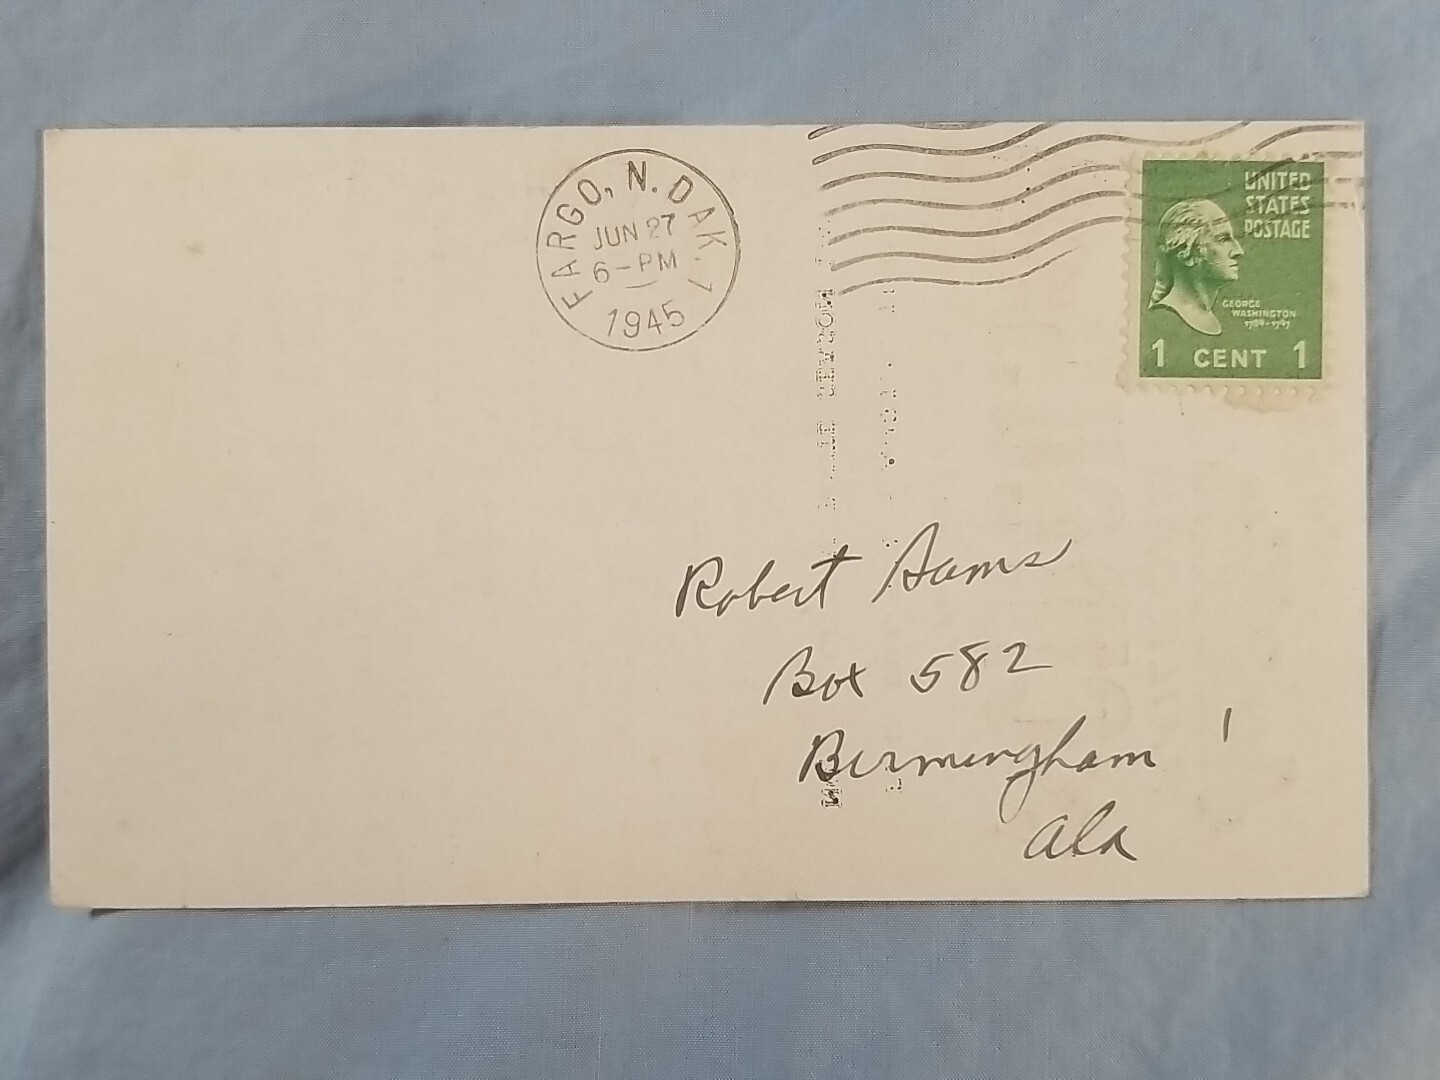 FARGO, N. DAK. 1
JUN 27
6-PM
1945
UNITED
STATES
POSTAGE
GEORGE
WASHINGTON
1789-1797
1 CENT 1
Robert Sams
Box 582
Birmingham 1
Ala